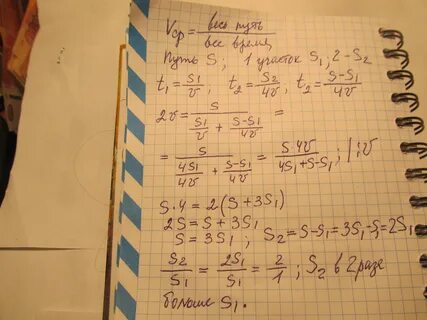 Vср = весь путь / все время,
Путь S, 1 участок S₁; 2 - S₂
t₁ = S₁/v, t₂ = S₂/4v, t₂ = (S-S₁)/4v
2v = S / (S₁/v + (S-S₁)/4v) =
= S / (4S₁/4v + (S-S₁)/4v) = S·4v / (4S₁+S-S₁) ; | :v
S·4 = 2(S + 3S₁)
2S = S + 3S₁
S = 3S₁ ; S₂ = S-S₁ = 3S₁-S₁ = 2S₁
S₂/S₁ = 2S₁/S₁ = 2/1 ; S₂ в 2 раза
больше S₁.